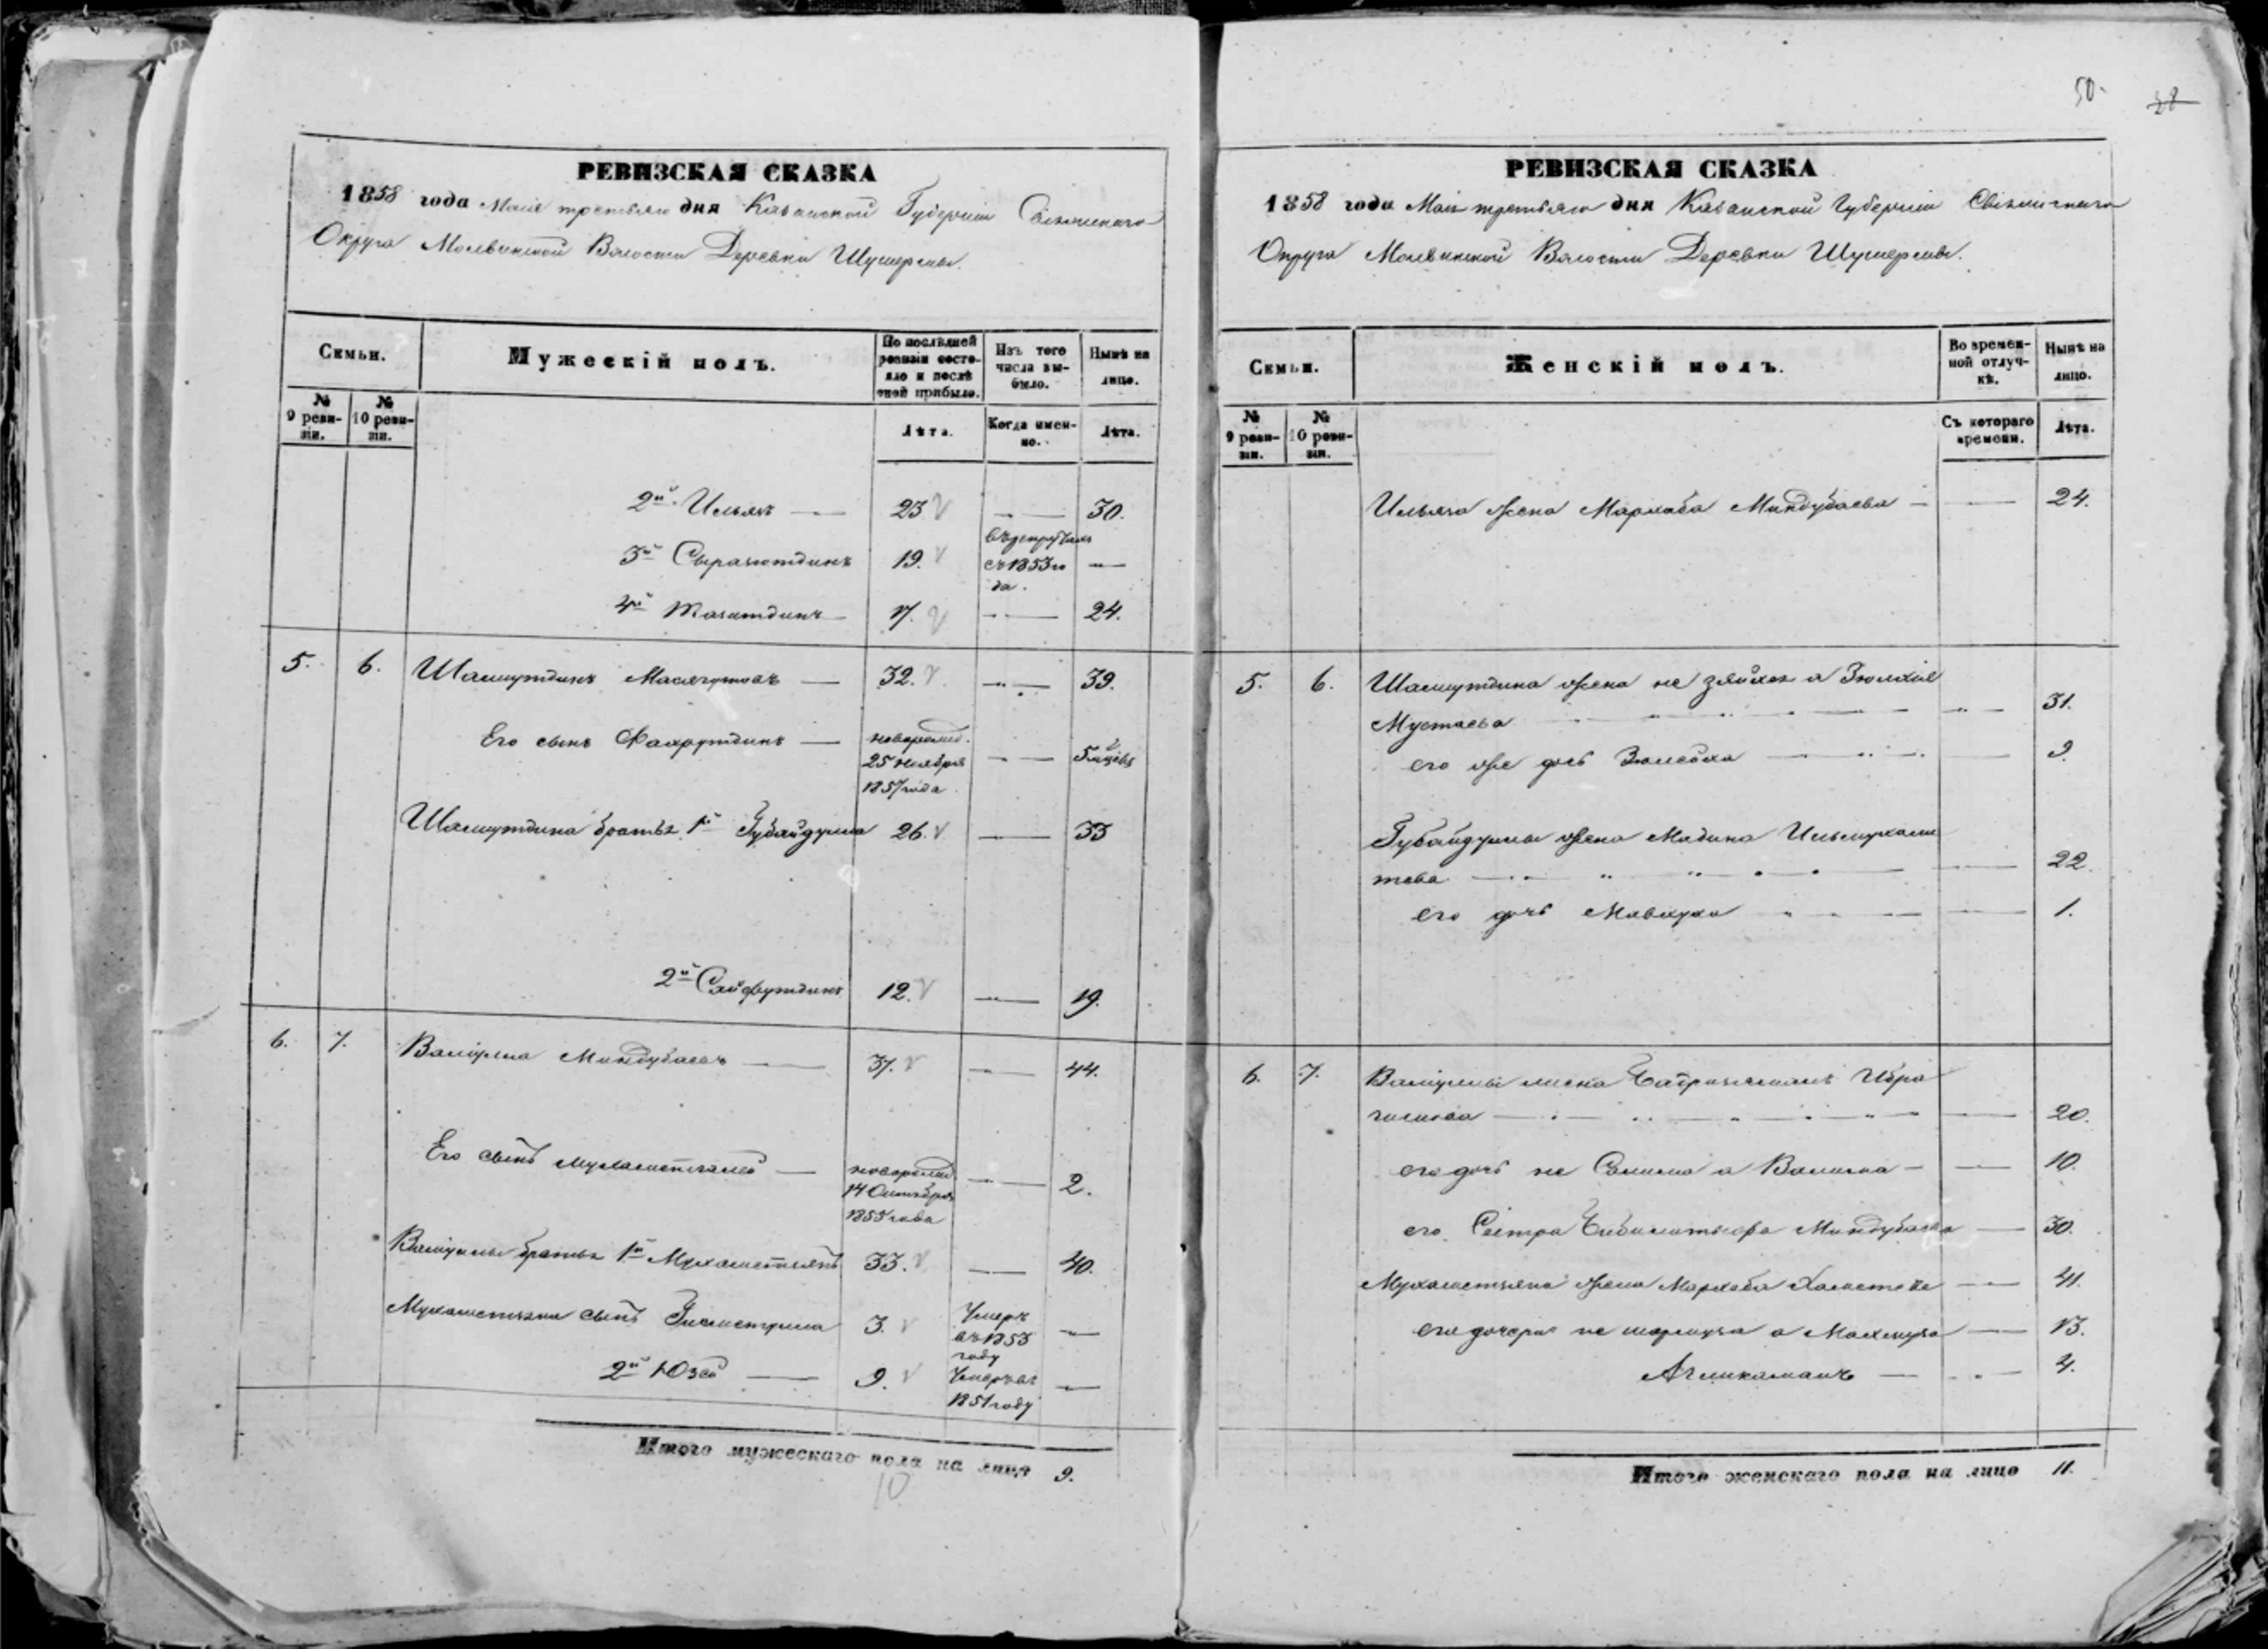 РЕВИЗСКАЯ СКАЗКА
1858 года Маія третьяго дня Казанской Губерніи Свіяжскаго
Округа Молвинской Волости Деревни
Семьи.
Мужескій полъ.
По послѣдней ревизіи состояло и послѣ оной прибыло.
Изъ того числа выбыло.
Нынѣ на лицо.
№ 9 ревизіи.
№ 10 ревизіи.
Лѣта.
Когда именно.
Лѣта.
2й Ильязъ — 23 — 30.
3й — 19. съ 1853 го
да. —
4й — 17. — 24.
5. 6. Шамсутдинъ — 32. — 39.
Его сынъ Фахрутдинъ — новорожд.
25 ноября
1857 года — 5 мѣсяцевъ
Шамсутдина братья 1й Губайдулла 26. — 33
2й Сайфутдинъ 12. — 19.
6. 7. Валіулла Миндубаевъ — 37. — 44.
Его сынъ — новорожд.
14 Октября
1855 года — 2.
Валіуллы братья 1й Мухаметзянъ 33. — 40.
Мухаметзяна сынъ 3. Умеръ
въ 1853
году —
2й Юзей — 9. Умеръ въ
1851 году —
Итого мужескаго пола на лицо 9.
10
50.
28
РЕВИЗСКАЯ СКАЗКА
1858 года Маія третьяго дня Казанской Губерніи Свіяжскаго
Округа Молвинской Волости Деревни
Семьи.
Женскій полъ.
Во временной отлучкѣ.
Нынѣ на лицо.
№ 9 ревизіи.
№ 10 ревизіи.
Съ котораго времени.
Лѣта.
Ильяза жена Мархаба Миндубаева — 24.
5. 6. Шамсутдина жена не а
Мустаева — 31.
его же дочь — 9.
Губайдуллы жена Мадина Ильмухаме
това — 22.
его дочь — 1.
6. 7. Валіуллы жена Ибра
гимова — 20.
его дочь не Салима а Валима — 10.
его Сестра Миндубаева — 30.
Мухаметзяна жена Мархаба — 41.
его дочери не а — 13.
— 4.
Итого женскаго пола на лицо 11.